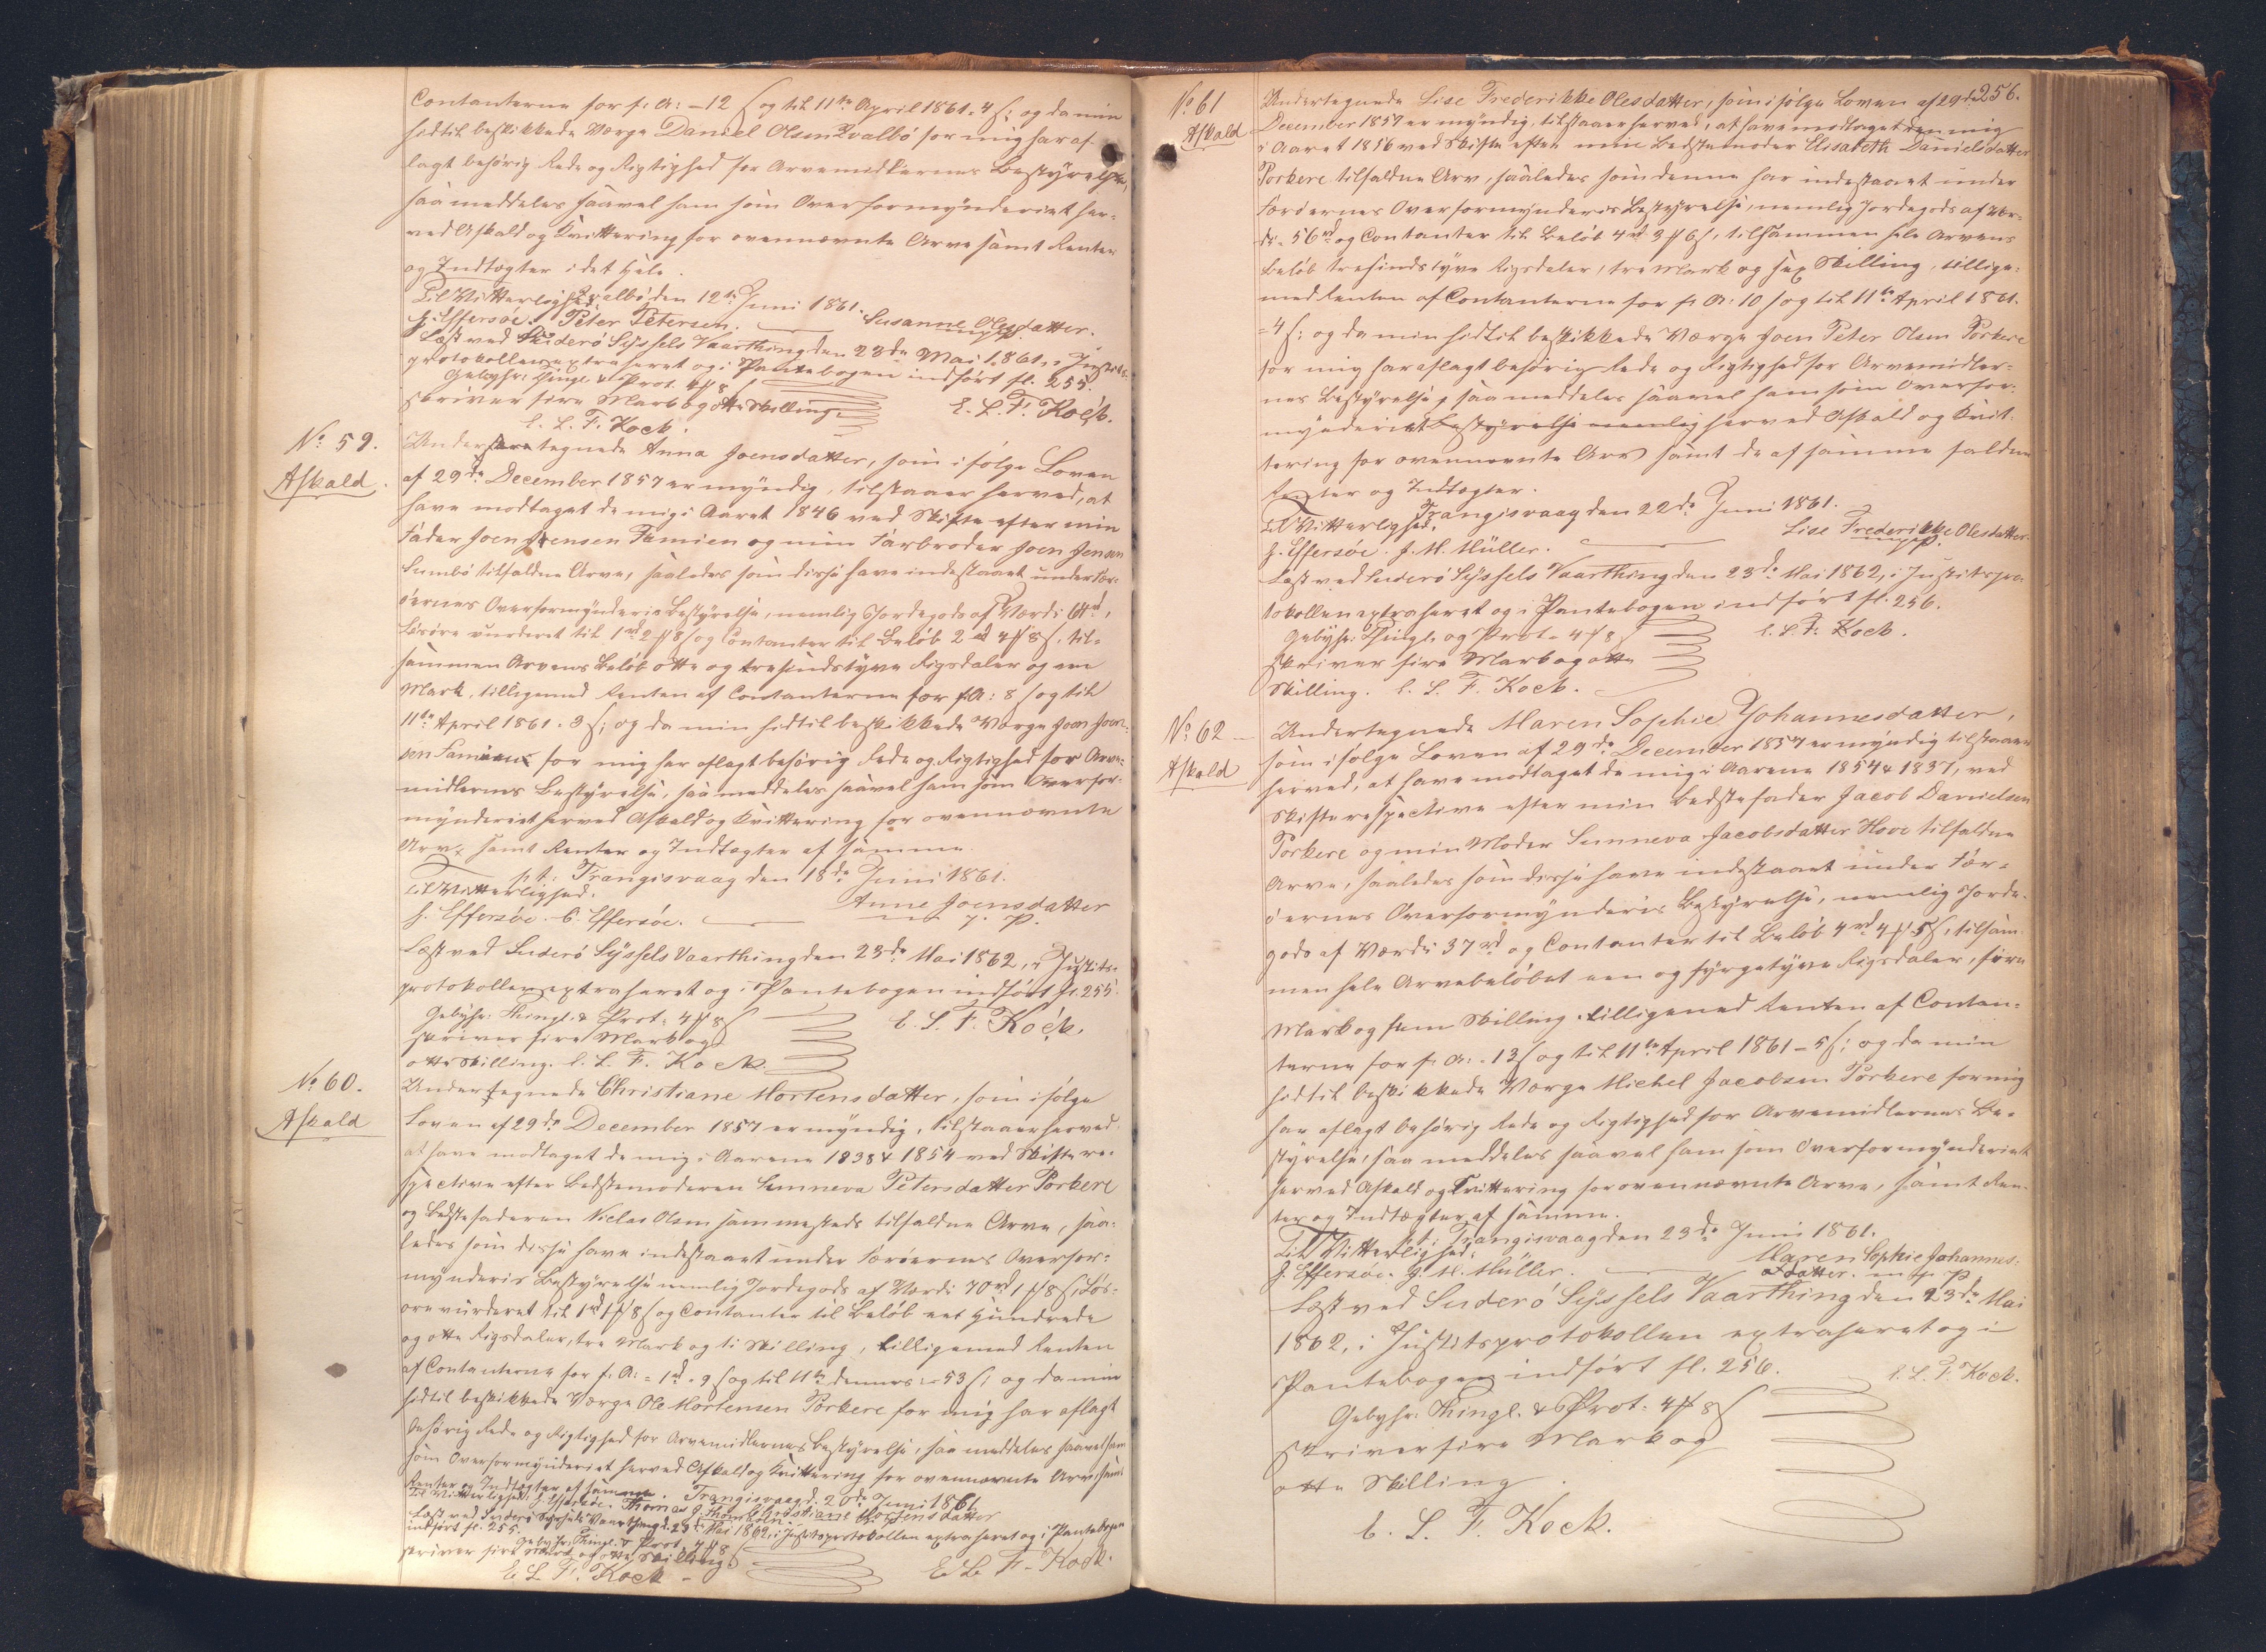 Contanterne for f: A: - 12 ß og til 11te April 1861 = 4 ß; og da min
hidtil beskikkede Værge Daniel Olsen Qvalbø for mig har af-
lagt behørig Rede og Rigtighed for Arvemidlernes Bestyrelse,
saa meddeles saavel ham som Overformynderiet her-
ved Afkald og Kvittering for ovennævnte Arv samt Renter
og Indtægter i det Hele.
Qvalbø den 12te Juni 1861.
Til Vitterlighed.
J. Effersøe. Peter Petersen. Susanne Olesdatter.
m. f. P.
Læst ved Suderø Syssels Vaarthing den 23de Mai 1861, i Justits-
protokollen extraheret og i Pantebogen indført fl. 255.
Gebyhr: Thingl. & Prot. 4 # 8 ß
skriver fire Mark og otte Skilling. E. L. F. Kock.
E. L. F. Kock.
No. 59.
Afkald.
Undertegnede Anna Joensdatter, som i følge Loven
af 29de December 1857 er myndig, tilstaaer herved, at
have modtaget de mig i Aaret 1846 ved Skifte efter min
Fader Joen Joensen Famien og min Farbroder Joen Jensen
Sumbø tilfaldne Arve, saaledes som disse have indestaaet under Fær-
øernes Overformynderies Bestyrelse, nemlig Jordegods af Værdi 64 rd,
Løsøre vurderet til 1 rd 2 # 8 ß og Contanter til Beløb 2 rd 4 # 8 ß, til-
sammen Arvens Beløb otte og tresindstyve Rigsdaler og een
Mark, tilligemed Renten af Contanterne for f. A: 8 ß og til
11te April 1861. 3 ß; og da min hidtil beskikkede Værge Joen Joen-
sen Famien for mig har aflagt behørig Rede og Rigtighed for Arve-
midlernes Bestyrelse, saa meddeles saavel ham som Overfor-
mynderiet herved Afkald og Kvittering for ovennævnte
Arv, samt Renter og Indtægter af samme.
p. t. Trangisvaag den 18de Juni 1861.
Til Vitterlighed.
J. Effersøe. C. Effersøe. Anne Joensdatter
m. f. P.
Læst ved Suderø Syssels Vaarthing den 23de Mai 1862, i Justits-
protokollen extraheret og i Pantebogen indført fl. 255.
Gebyhr: Thingl. & Prot. 4 # 8 ß
skriver fire Mark og E. L. F. Kock.
otte Skilling. E. L. F. Kock.
No. 60.
Afkald
Undertegnede Christiane Mortensdatter, som i følge
Loven af 29de December 1857 er myndig, tilstaaer herved,
at have modtaget de mig i Aarene 1838 & 1854 ved Skifte re-
spective efter Bedstemoderen Sunneva Petersdatter Porkere
og Bedstefaderen Niclas Olsen sammesteds tilfaldne Arve, saa-
ledes som disse have indestaaet under Færøernes Overfor-
mynderies Bestyrelse nemlig Jordegods af Værdi 70 rd 1 # 8 ß, Løs-
øre vurderet til 1 rd 1 # 8 ß og Contanter til Beløb eet Hundrede
og otte Rigsdaler, tre Mark og ti Skilling, tilligemed Renten
af Contanterne for f. A: = 1 rd. 9 ß og til 11te dennes: - 53 ß; og da min
hidtil beskikkede Værge Ole Mortensen Porkere for mig har aflagt
behørig Rede og Rigtighed for Arvemidlernes Bestyrelse, saa meddeles saavel ham
som Overformynderiet herved Afkald og Kvittering for ovennævnte Arv, samt
Renter og Indtægter af samme. Trangisvaag d. 20de Juni 1861.
Til Vitterlighed: J. Effersøe. Thomas J. Thomsen. Christiane Mortensdatter
Læst ved Suderø Syssels Vaarthing d. 23de Mai 1862, i Justitsprotokollen extraheret og i Pantebogen
indført fl. 255.
Gebyhr: Thingl. & Prot. 4 # 8 ß
skriver fire Mark og otte Skilling.
E. L. F. Kock. E. L. F. Kock.
256.
No. 61
Afkald
Undertegnede Lise Frederikke Olesdatter, som i følge Loven af 29de
December 1857 er myndig, tilstaaer herved, at have modtaget den mig
i Aaret 1856 ved Skifte efter min Bedstemoder Elisabeth Danielsdatter
Porkere tilfaldne Arv, saaledes som denne har indestaaet under
Færøernes Overformynderies Bestyrelse, nemlig Jordegods af Vær-
di = 56 rd og Contanter til Beløb 4 rd 3 # 6 ß, tilsammen hele Arvens
Beløb tresindstyve Rigsdaler, tre Mark og sex Skilling, tillige-
med Renten af Contanterne for f. A: 10 ß og til 11te April 1861.
= 4 ß; og da min hidtil beskikkede Værge Joen Peter Olsen Porkere
for mig har aflagt behørig Rede og Rigtighed for Arvemidler-
nes Bestyrelse, saa meddeles saavel ham som Overfor-
mynderiet Bestyrelse nemlig herved Afkald og Kvit-
tering for ovennævnte Arv samt de af samme faldne
Renter og Indtægter.
Trangisvaag den 22de Juni 1861.
Til Vitterlighed. Lise Frederikke Olesdatter.
J. Effersøe. J. M. Müller. m. f. P.
Læst ved Suderø Syssels Vaarthing den 23de Mai 1862, i Justitspro-
tokollen extraheret og i Pantebogen indført fl. 256.
Gebyhr: Thingl. og Prot. 4 # 8 ß E. L. F. Kock.
skriver fire Mark og otte
Skilling. E. L. F. Kock.
No. 62
Afkald
Undertegnede Maren Sophie Johannesdatter,
som i følge Loven af 29de December 1857 er myndig tilstaaer
herved, at have modtaget de mig i Aarene 1854 & 1837, ved
Skifte respective efter min Bedstefader Jacob Danielsen
Porkere og min Moder Sunneva Jacobsdatter Hove tilfaldne
Arve, saaledes som disse have indestaaet under Fær-
øernes Overformynderies Bestyrelse, nemlig Jorde-
gods af Værdi 37 rd og Contanter til Beløb 4 rd 4 # 5 ß, tilsam-
men hele Arvebeløbet een og fyrgetyve Rigsdaler, fire
Mark og fem Skilling. tilligemed Renten af Contan-
terne for f. A: - 13 ß og til 11te April 1861 - 5 ß; og da min
hidtil beskikkede Værge Michel Jacobsen Porkere for mig
har aflagt behørig Rede og Rigtighed for Arvemidlernes Be-
styrelse, saa meddeles saavel ham som Overformynderiet
herved Afkald og Kvittering for ovennævnte Arve, samt Ren-
ter og Indtægter af samme.
p. t. Trangisvaag den 23de Juni 1861.
Til Vitterlighed. Maren Sophie Johannes-
J. Effersøe. J. M. Müller. datter. m. f. P
Læst ved Suderø Syssels Vaarthing den 23de Mai
1862, i Justitsprotokollen extraheret og i
Pantebogen indført fl. 256. E. L. F. Kock.
Gebyhr: Thingl. & Prot: 4 # 8 ß
skriver fire Mark og
otte Skilling.
E. L. F. Kock.